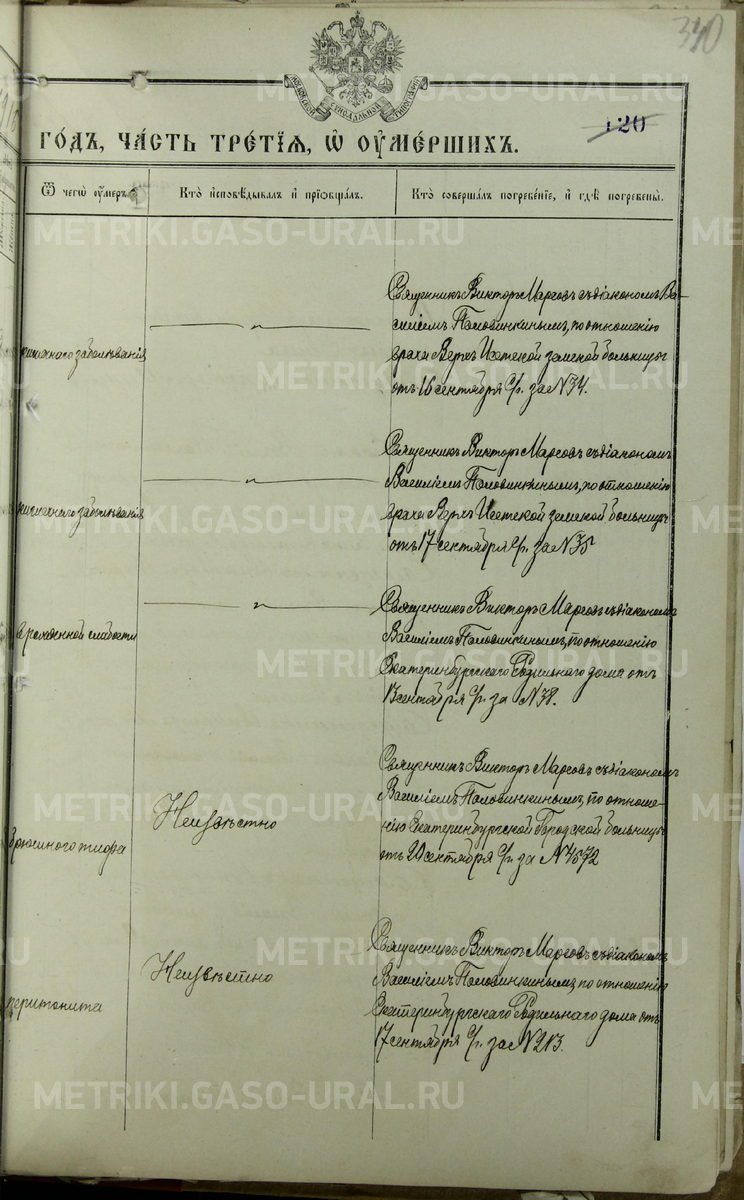 340
МОСКОВСКОЙ СѴНОДАЛЬНОЙ ТИПОГРАФІИ
120
ГО́ДЪ, ЧА́СТЬ ТРЕ́ТІѦ, Ѡ҆ ОУ҆МЕ́РШИХЪ.
Ѿ чегѡ̀ оу҆́меръ.
Кто̀ и҆сповѣ́дывалъ и҆ прїѡбща́лъ.
Кто̀ соверша́лъ погребе́нїе, и҆ гдѣ̀ погребены̀.
кишечнаго заболѣванія
— " —
Священникъ Викторъ Маргов съ діакономъ Ва-
силіемъ Половинкинымъ, по отношенію
врача Верхъ Исетской земской больницы
отъ 16 сентября с/г. за № 34.
кишечнаго заболѣванія
— " —
Священникъ Викторъ Маргов съ діакономъ
Василіемъ Половинкинымъ, по отношенію
врача Верхъ Исетской земской больницы
отъ 17 сентября с/г. за № 35
врожденной слабости
— " —
Священникъ Викторъ Маргов съ діакономъ
Василіемъ Половинкинымъ, по отношенію
Екатеринбургскаго Родильнаго дома отъ
сентября с/г. за № 38.
брюшного тифа
Неизвѣстно
Священникъ Викторъ Маргов съ діакономъ
Василіемъ Половинкинымъ, по отноше-
нію Екатеринбургской Городской больницы
отъ 20 сентября с/г. за № 4572
перитонита
Неизвѣстно
Священникъ Викторъ Маргов съ діакономъ
Василіемъ Половинкинымъ, по отношенію
Екатеринбургскаго Родильнаго дома отъ
17 сентября с/г. за № 213.
METRIKI.GASO-URAL.RU